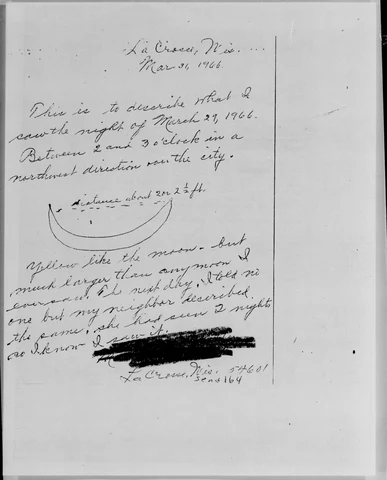 La Crosse, Wis.
Mar 31, 1966.
This is to describe what I
saw the night of March 29, 1966.
Between 2 and 3 o'clock in a
northwest direction over the city.
distance about 2 or 2 ½ ft.
Yellow like the moon - but
much larger than any moon I
ever saw. The next day, I told no
one but my neighbor described
the same. She had seen 2 nights
so I know I saw it.
La Crosse, Wis. 54601